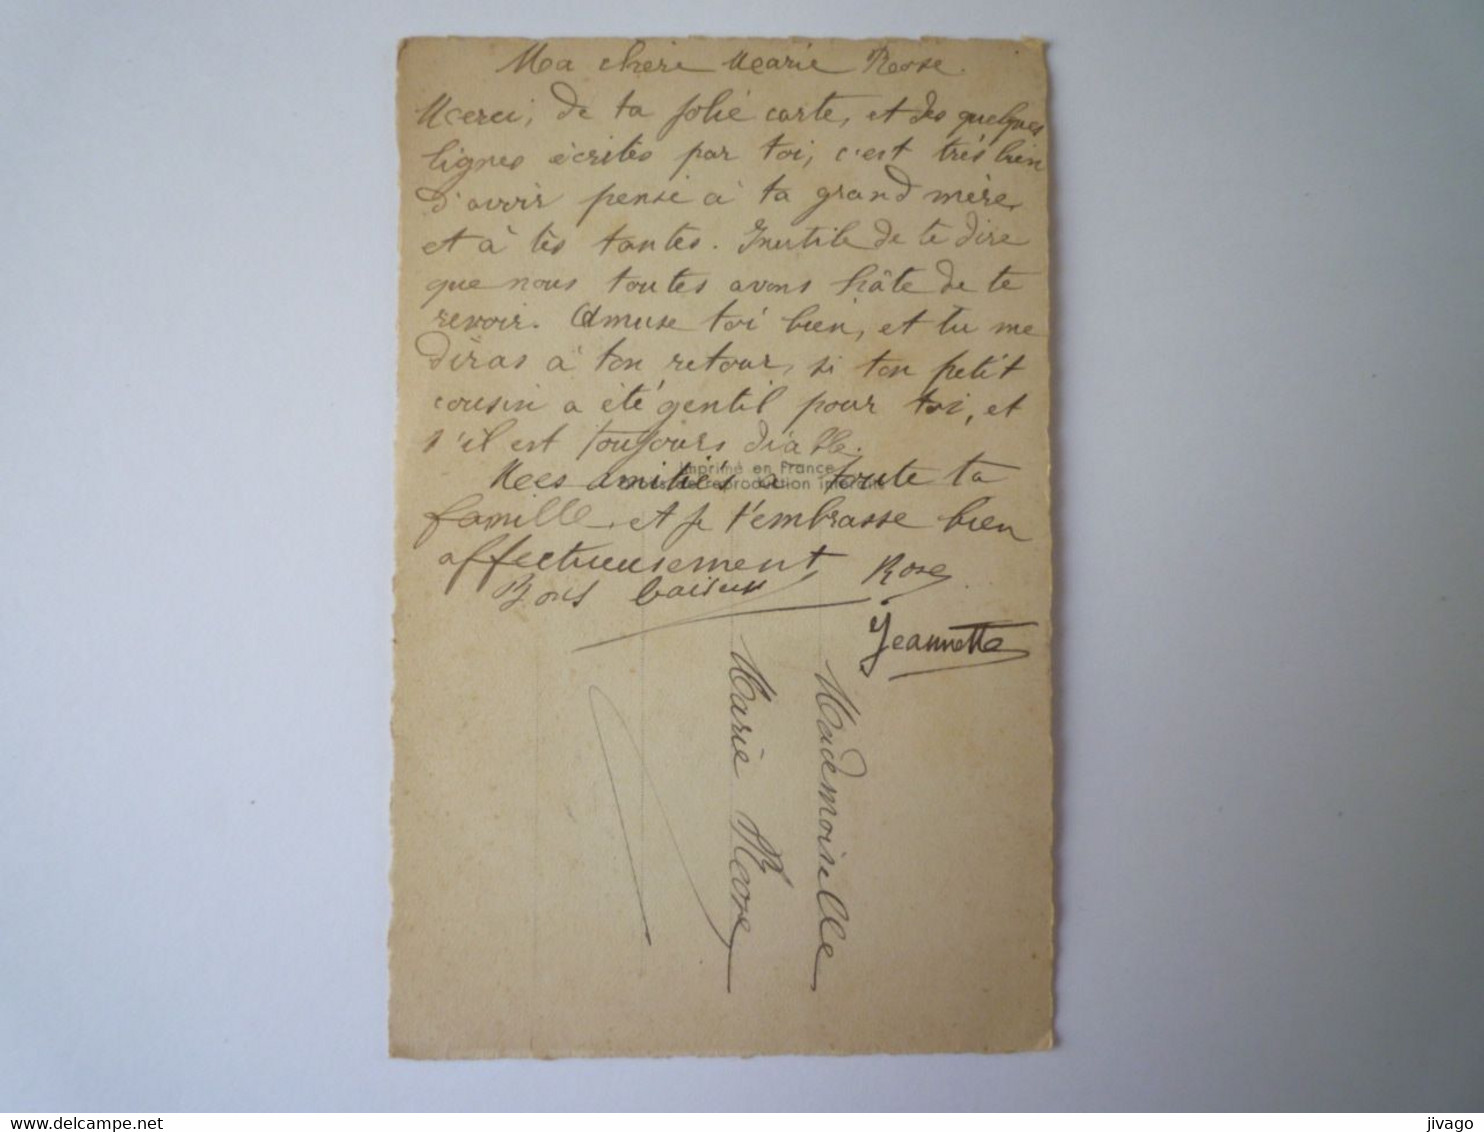 Ma chère Marie Rose.
Merci, de ta jolie carte, et des quelques
lignes écrites par toi, c'est très bien
d'avoir pensé à ta grand mère,
et à tes tantes. Inutile de te dire
que nous toutes avons hâte de te
revoir. Amuse toi bien, et tu me
diras à ton retour, si ton petit
cousin a été gentil pour toi, et
s'il est toujours diable.
Imprimé en France
Mes amitiés à toute ta
reproduction interdite
famille, et je t'embrasse bien
affectueusement Rose
Bons baisers
Jeannette
Mademoiselle
Marie Rose
delcampe.net
jivago